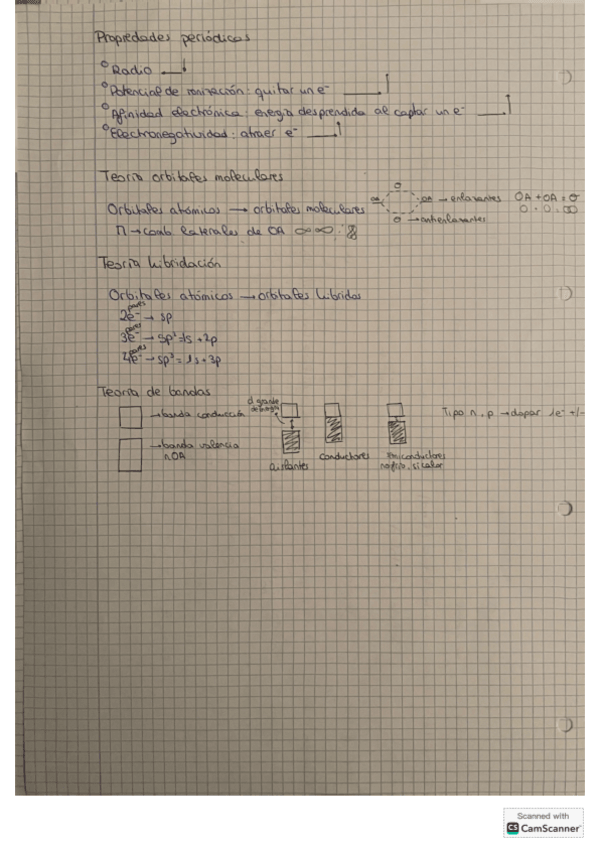 Propiedades periódicas
Radio
Potencial de ionización: quitar un e⁻
Afinidad electrónica: energía desprendida al captar un e⁻
Electronegatividad: atraer e⁻
Teoría orbitales moleculares
Orbitales atómicos → orbitales moleculares
OA → enlazantes OA + OA = σ
→ antienlazantes
Π → comb laterales de OA
Teoría hibridación
Orbitales atómicos → orbitales híbridos
pares
2e⁻ → sp
pares
3e⁻ → sp² = 1s + 2p
pares
4e⁻ → sp³ = 1s + 3p
Teoría de bandas
→ banda conducción
d grande de energía
Tipo n, p → dopar 1e⁻ +/-
→ banda valencia
nOA
aislantes
conductores
semiconductores
no frío, sí calor
Scanned with
CS CamScanner